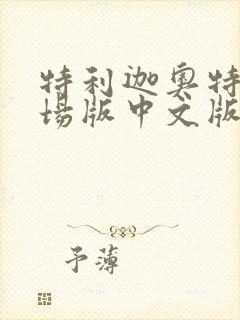 特利迦奥特
场版中文版
予薄